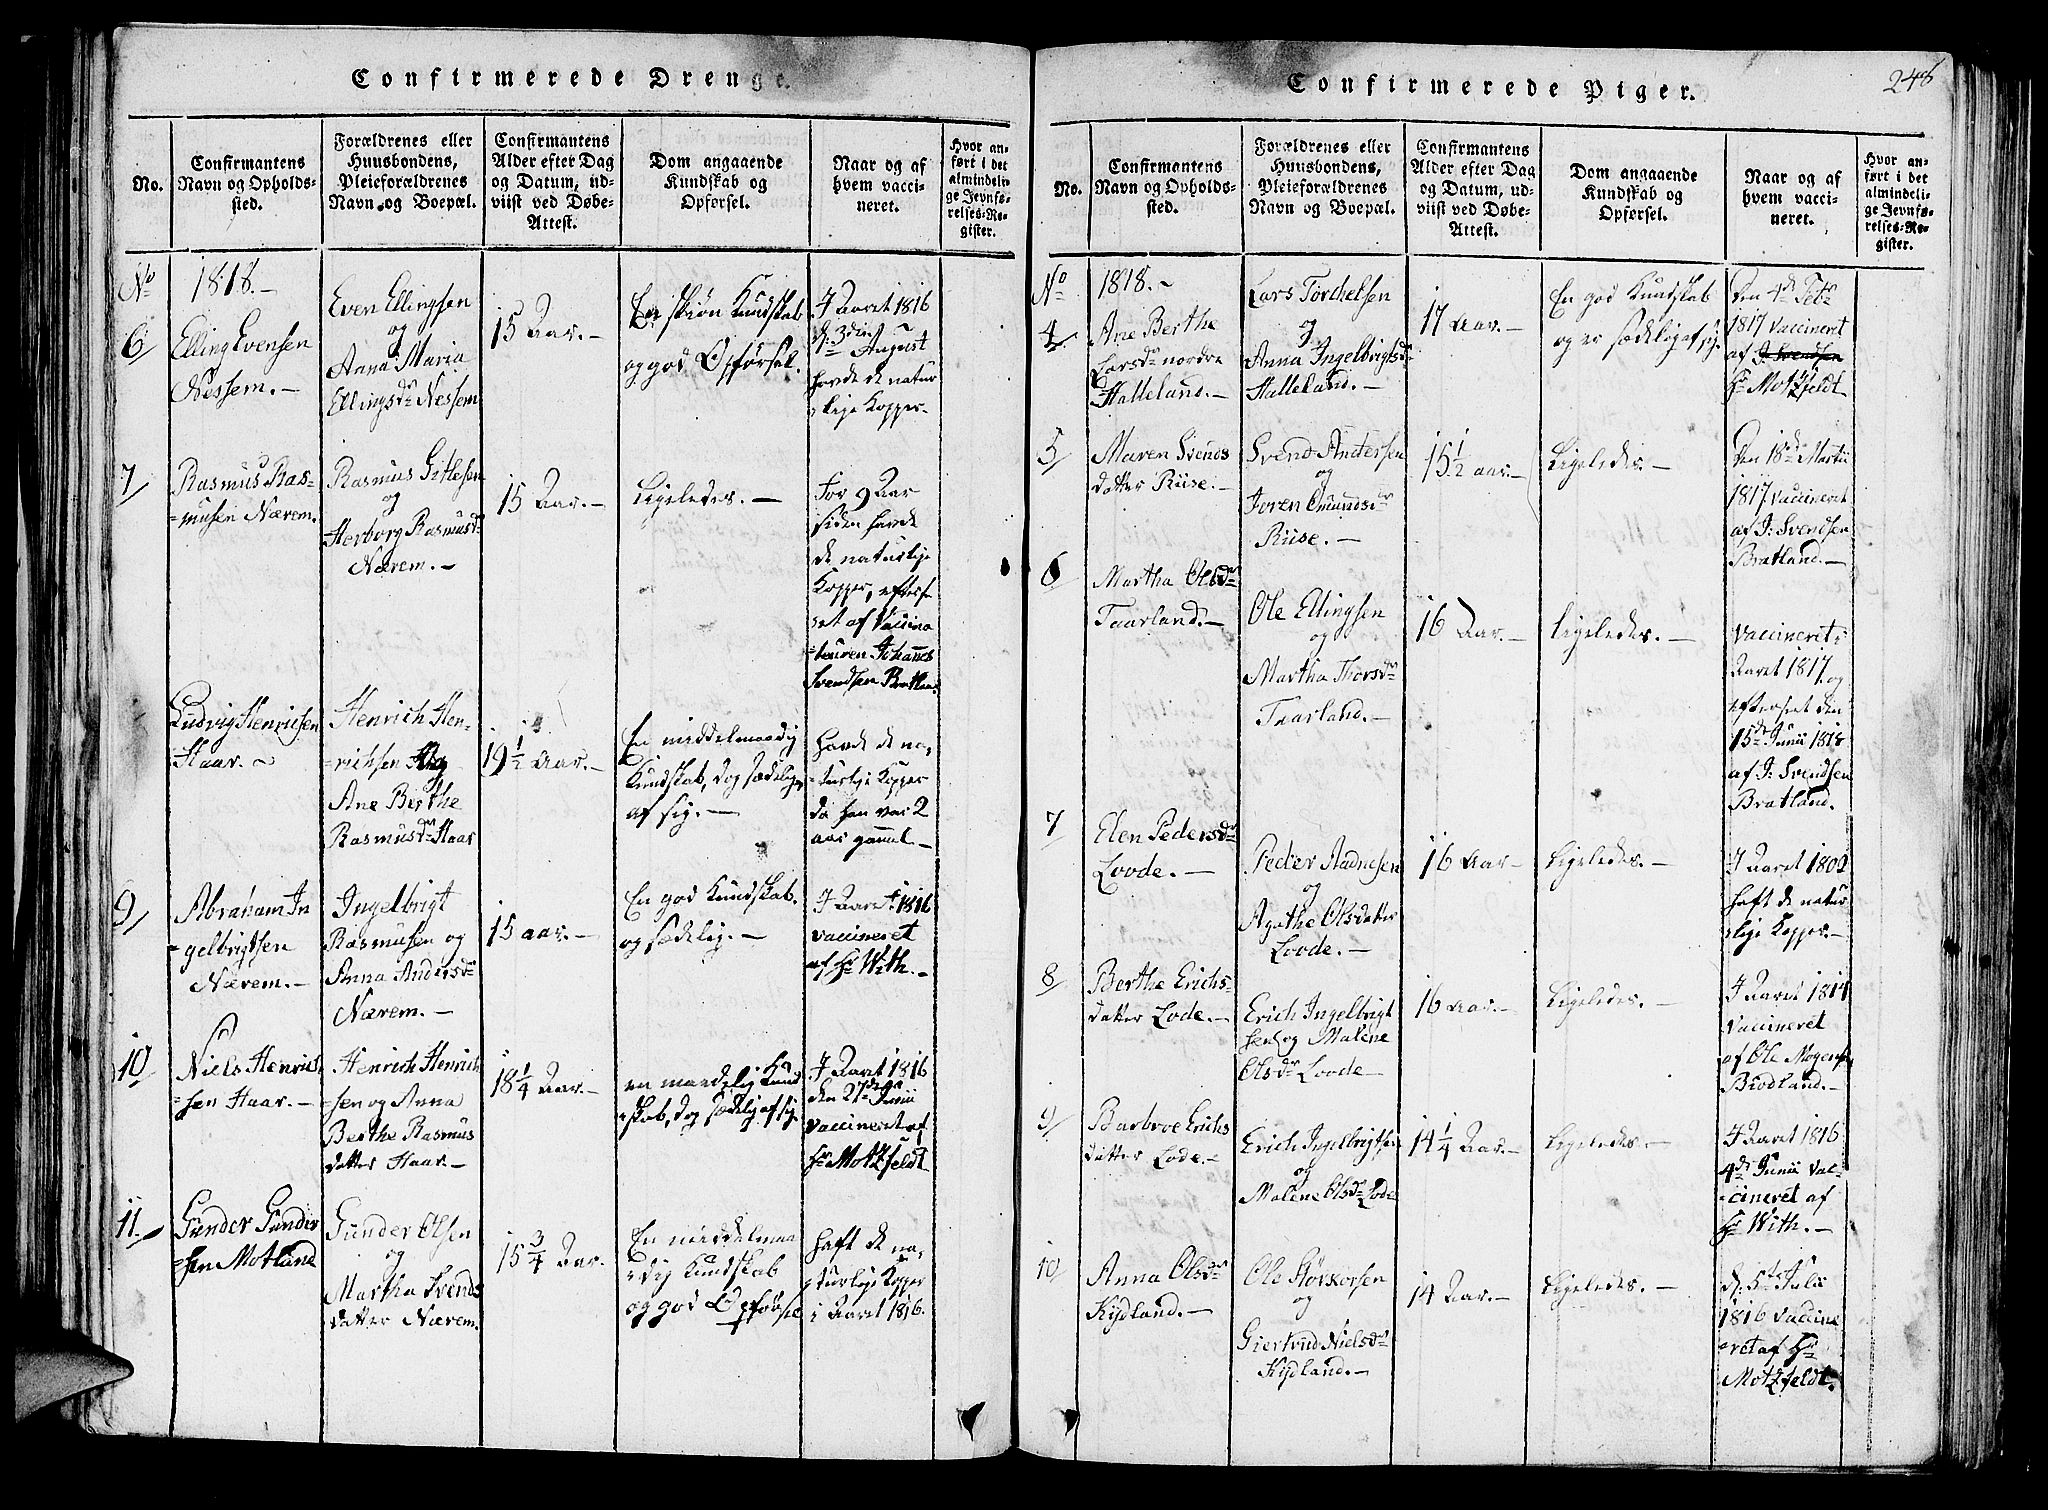 Confirmerede Drenge.
No.
Confirmantens
Navn og Opholds-
sted.
Forældrenes eller
Huusbondens,
Pleieforældrenes
Navn og Boepæl.
Confirmantens
Alder efter Dag
og Datum, ud-
viist ved Døbe-
Attest.
Dom angaaende
Kundskab og
Opførsel.
Naar og af
hvem vacci-
neret.
Hvor an-
ført i det
almindeli-
ge Jevnfø-
relses-Re-
gister.
No
1818.-
6/
Elling Evensen
Nessem.-
Even Ellingsen
og
Anna Maria
Ellingsdr Nessem
15 Aar.-
En skiøn Kundskab
og god Opførsel.
I Aaret 1816
d: 3die
August
havde de natur
lige Kopper-
7/
Rasmus Ras-
=musen Nærem.
Rasmus Gitlesen
og
Herborg Rasmusdr
Nærem.-
15 Aar.-
Ligeledes.-
For 9 Aar
siden havde
de naturlige
Kopper, efterse
et af Vaccina
=teuren Johannes
Svendsen Bratland
Ludvig Henrichsen
Haar.-
Henrich Hen-
=richsen
Ane Berthe
Rasmusdr Haar
19 1/2 Aar.-
En middelmaadig
Kundskab, dog sædelig
af sig.-
havde de na-
turlige Kopper
da han var 2
aar gammel-
9/
Abraham In
=gelbrigtsen
Nærem.-
Ingelbrigt
Rasmusen og
Anna Andersdr
Nærem.-
15 aar.-
En god Kundskab.
og sædelig.-
I Aaret 1816
vaccineret
af Hr With.-
10/
Niels Henrich
=sen Haar.-
Henrich Henrich
=sen og Anna
Berthe Rasmus
datter Haar.-
18 1/4 Aar.-
en maadelig Kund
=skab, dog sædelig af sig.
I Aaret 1816
den 27de Junii
vaccineret af
Hr Motzfeldt
11./
Gunder Gunder
=sen Motland
Gunder Olsen
og
Martha Svends
datter Nærem.
15 3/4 Aar.
En middelmaa
dig Kundskab
og god Opførsel
haft de na-
turlige Kopper
i Aaret 1816.
Confirmerede Piger.
248
No.
Confirmantens
Navn og Opholds-
sted.
Forældrenes eller
Huusbondens,
Pleieforældrenes
Navn og Boepæl.
Confirmantens
Alder efter Dag
og Datum, ud-
viist ved Døbe-
Attest.
Dom angaaende
Kundskab og
Opførsel.
Naar og af
hvem vacci-
neret.
Hvor an-
ført i det
almindeli-
ge Jevnfø-
relses-Re-
gister.
No
1818.-
4/
Ane Berthe
Larsdr nordre
Halleland.-
Lars Torchelsen
og
Anna Ingelbrigtsdr
Halleland.-
17 Aar.-
En god Kundskab
og er sædelig af sig.
Den 4de Febr
1817 vaccineret
af J Svendsen
Hr Motzfeldt
5/
Maren Svends
datter Riise.-
Svend Andersen
og
Joren Omundsdr
Riise.-
15 1/2 aar.-
Ligeledes.-
Den 18de Martii
1817 vaccineret
af J: Svendsen
Bratland.-
6/
Martha Olsdr
Taarland.-
Ole Ellingsen
og
Martha Thorsdr
Taarland.-
16 Aar.-
Ligeledes.-
Vaccineret i
Aaret 1817 og
efterseet den
15de Junii 1818
af J: Svendsen
Bratland.
7/
Elen Pedersdr
Lovde.-
Peder Aadnesen
og
Agathe Olsdatter
Lovde.-
16 Aar-
Ligeledes.-
I Aaret 1802
haft de natur
lige Kopper.-
8/
Berthe Erichs-
datter Lode.-
Erich Ingelbrigt
sen og Malene
Olsdr Lovde
16 Aar.-
Ligeledes.-
I Aaret 1814
vaccineret
af Ole Mogens
Brodland.-
9/
Barbroe Erichs
datter Lode.-
Erich Ingelbrigtsen
og
Malene Olsdr Lode
14 1/4 Aar.-
Ligeledes.-
I Aaret 1816
4de Junii vac-
=cineret af
Hr With.-
10/
Anna Olsdr
Kydland.-
Ole Storkorsen
og
Giertrud Nielsdr
Kydland.-
14 Aar.-
Ligeledes.-
d: 5te Julii
1816 vaccine
=ret af Hr
Motzfeldt.